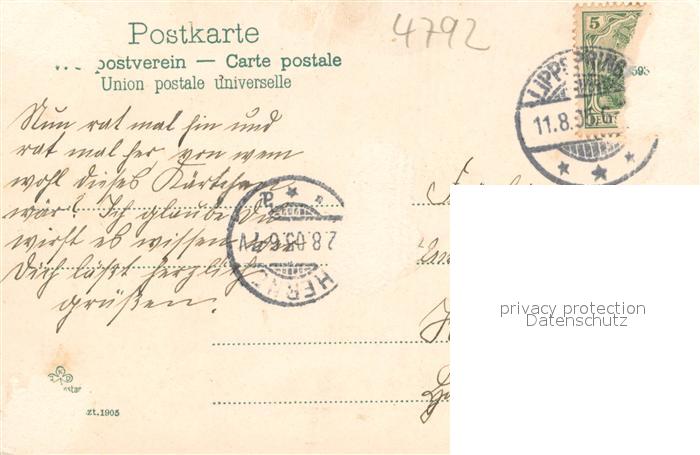 4792
Postkarte
postverein — Carte postale
Union postale universelle
5
LIPPSPRING
11.8.05
593
Nun rat mal hin und
rat mal her, von wem
wohl dieses Kärtchen
wär? Ich glaube Du
wirst es wissen, wer
Dich läßt herzlich
grüßen.
HERNE
2.8.05.6-7V
privacy protection
Datenschutz
zt.1905